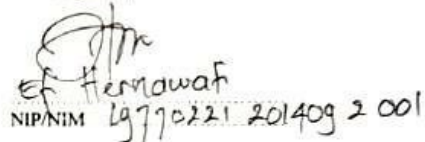 Ef Hernawaf
NIP/NIM 19770221 201409 2 001